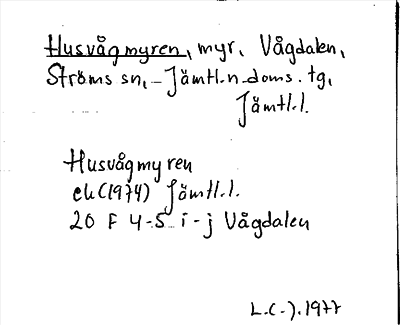 Husvågmyren, myr, Vågdalen,
Ströms sn, Jämtl.n.doms.tg,
Jämtl.l.
Husvågmyren
ek(1974) Jämtl.l.
20 F 4-5 i-j Vågdalen
L.C-).1977